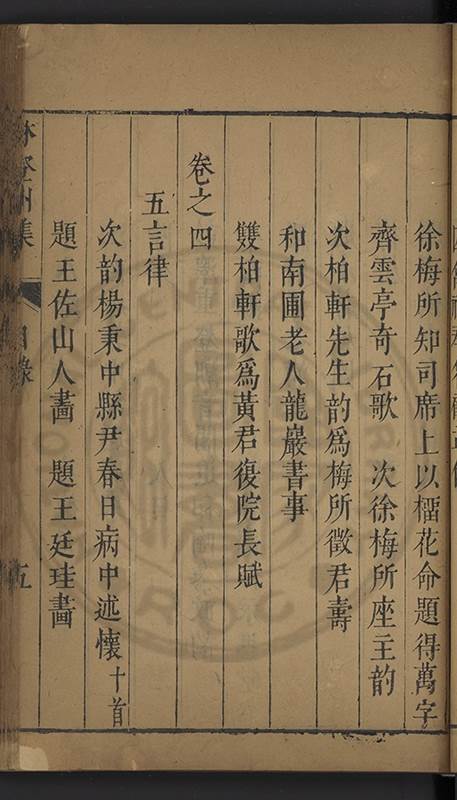 徐梅所知司席上以榴花命題得萬字
齊雲亭奇石歌　次徐梅所座主韵
次柏軒先生韵爲梅所徵君壽
和南圃老人龍巖書事
雙柏軒歌爲黃君復院長賦
卷之四
五言律
次韵楊秉中縣尹春日病中述懷十首
題王佐山人畵　題王廷珪畵
林登州集　目錄　五